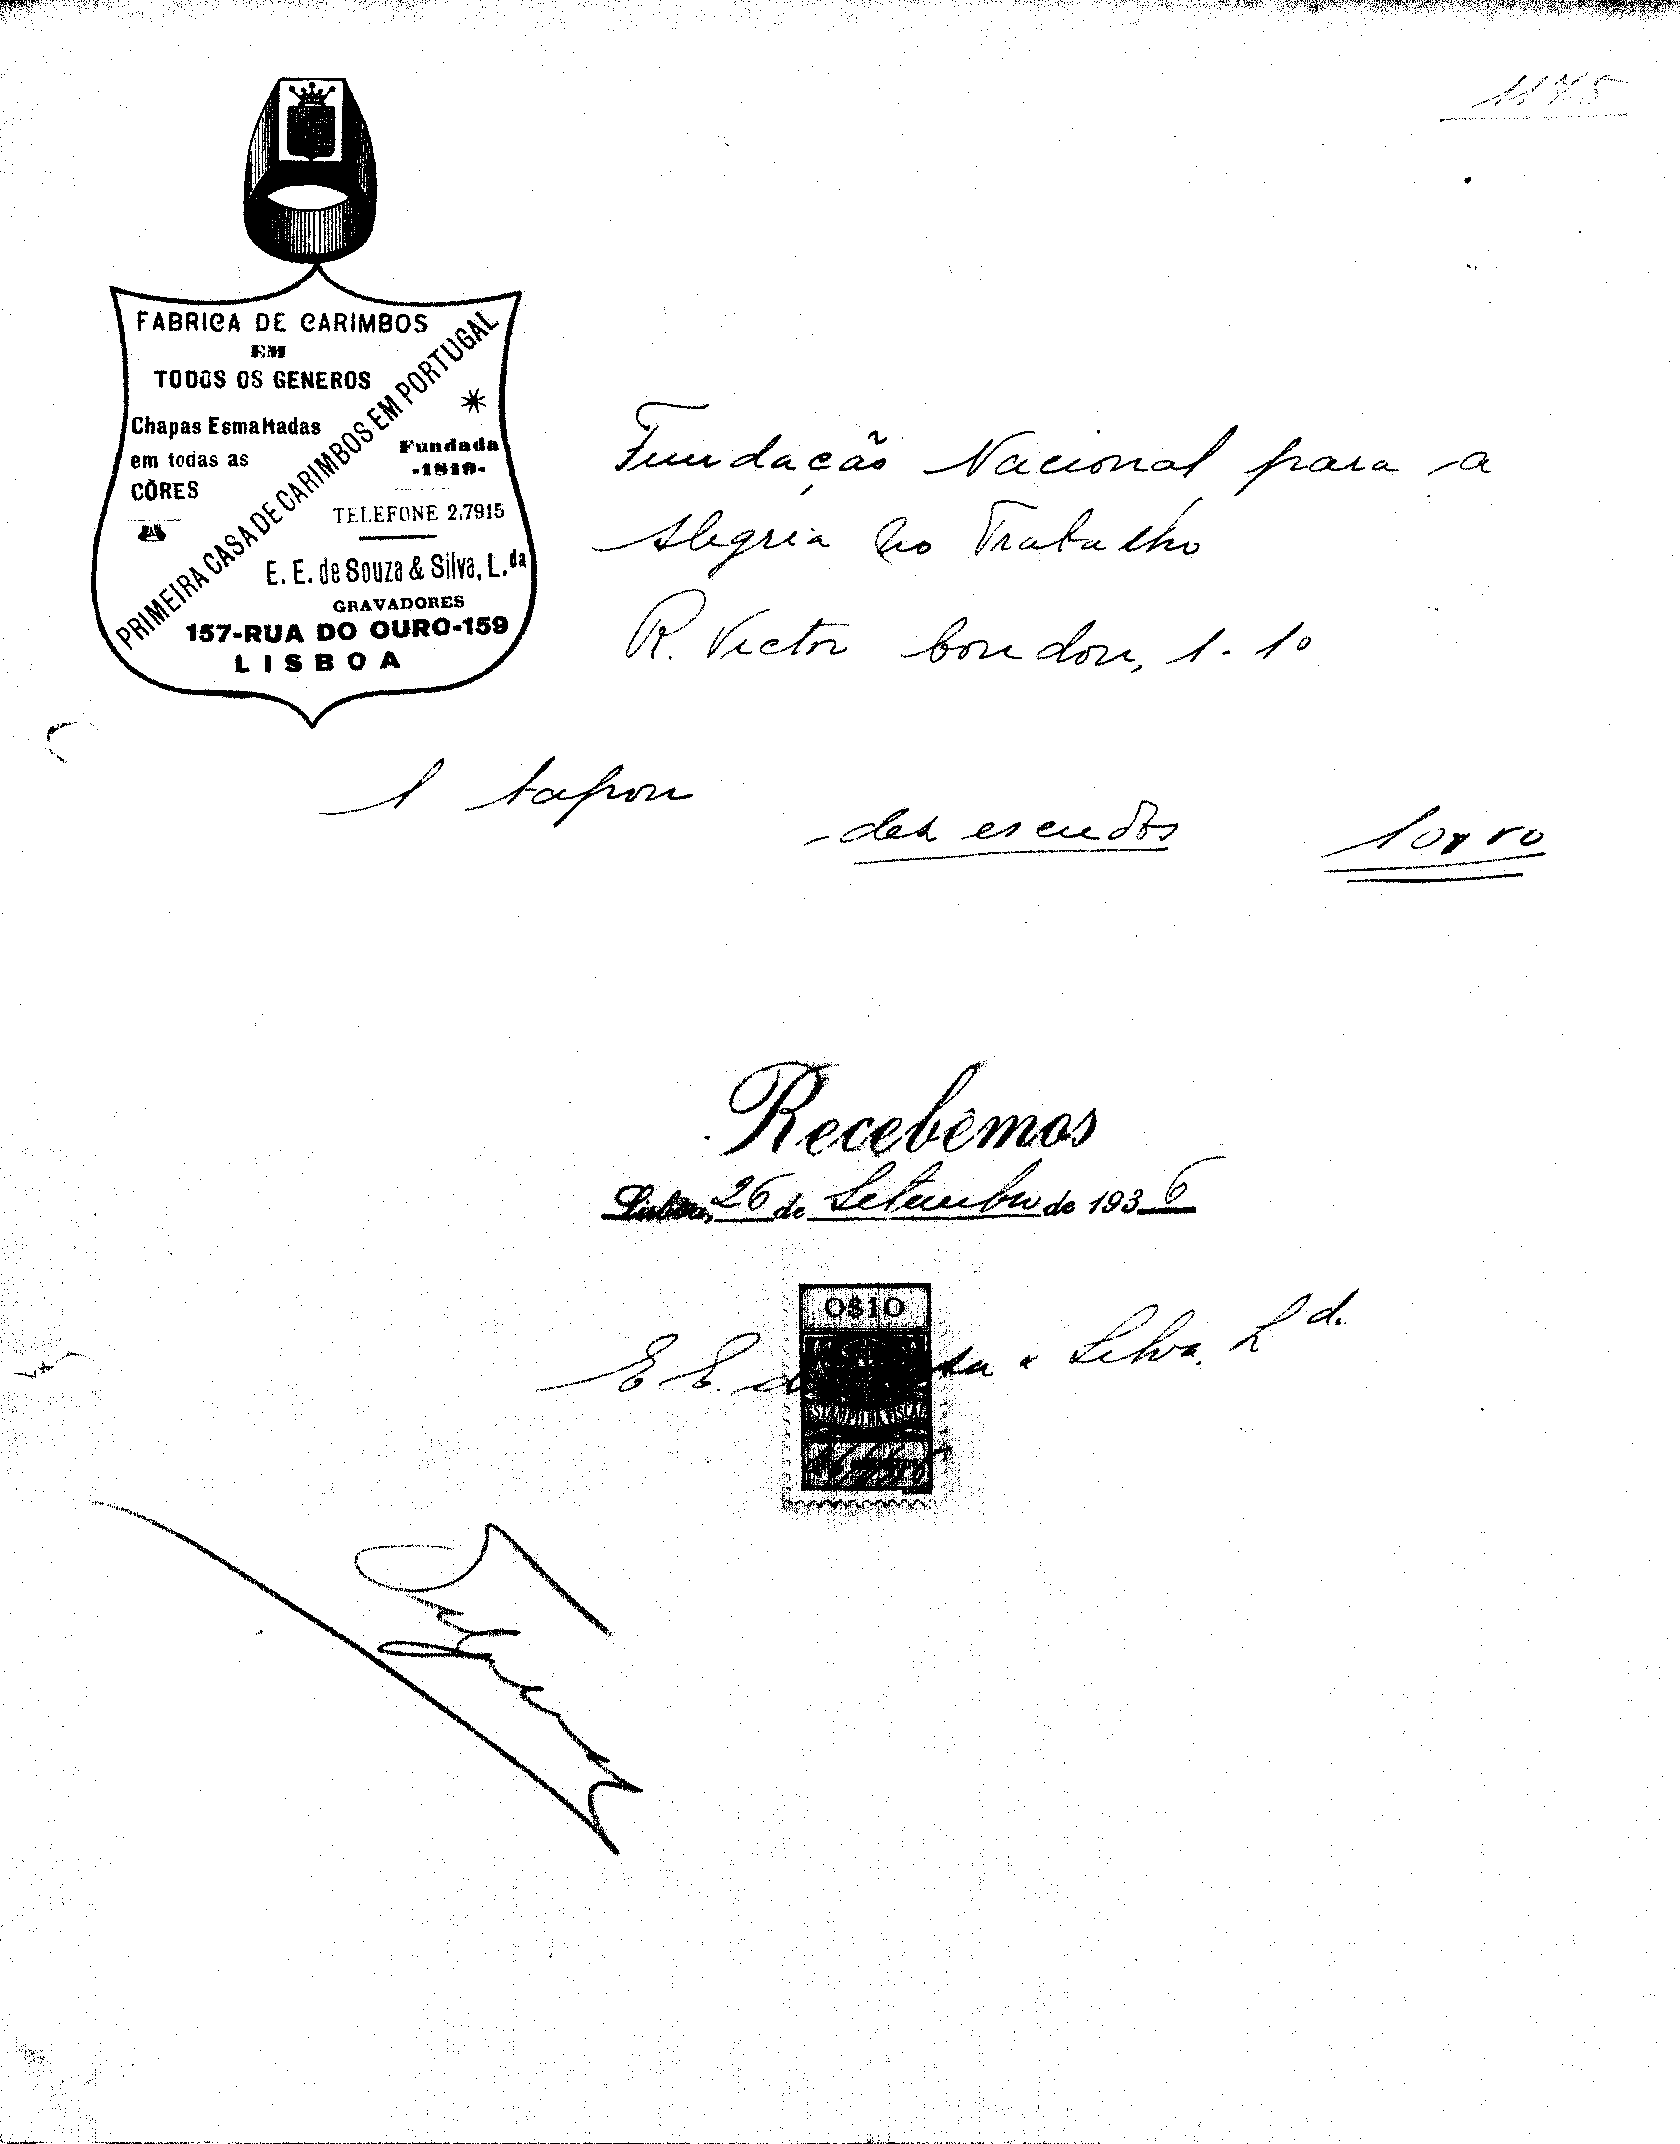 1175
FABRICA DE CARIMBOS
EM
TODOS OS GENEROS
PRIMEIRA CASA DE CARIMBOS EM PORTUGAL
Chapas Esmaltadas
em todas as
CÔRES
Fundada
-1810-
TELEFONE 2.7915
E. E. de Souza & Silva, L.da
GRAVADORES
157-RUA DO OURO-159
LISBOA
Fundação Nacional para a
Alegria no Trabalho
R. Victor Cordon, 1-1º
1 tapon
dez escudos 10$00
Recebemos
Lisboa, 26 de Setembro de 1936
0$10
E E. d sa & Silva, Ld.
ESTAMPILHA FISCAL